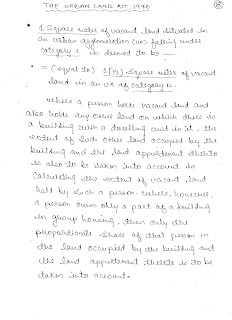 THE URBAN LAND ACT, 1976
* 1 Square meter of vacant land situated in
an urban agglomeration (UA) falling under
category d is deemed to be —
= (equal to) 1(1/3) Square meter of vacant
land in an UA of category D.
where a person holds vacant land and
also holds any other land on which there is
a building with a dwelling unit in it, the
extent of such other land occupied by the
building and the land appurtenant thereto
is also to be taken into account in
calculating the extent of vacant land
held by such a person. where, however,
a person owns only a part of a building
in group housing, then only the
proportionate share of that person in
the land occupied by the building and
the land appurtenant thereto is to be
taken into account.